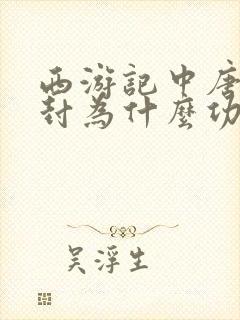 西游記中唐
封為什麼功
吳浮生